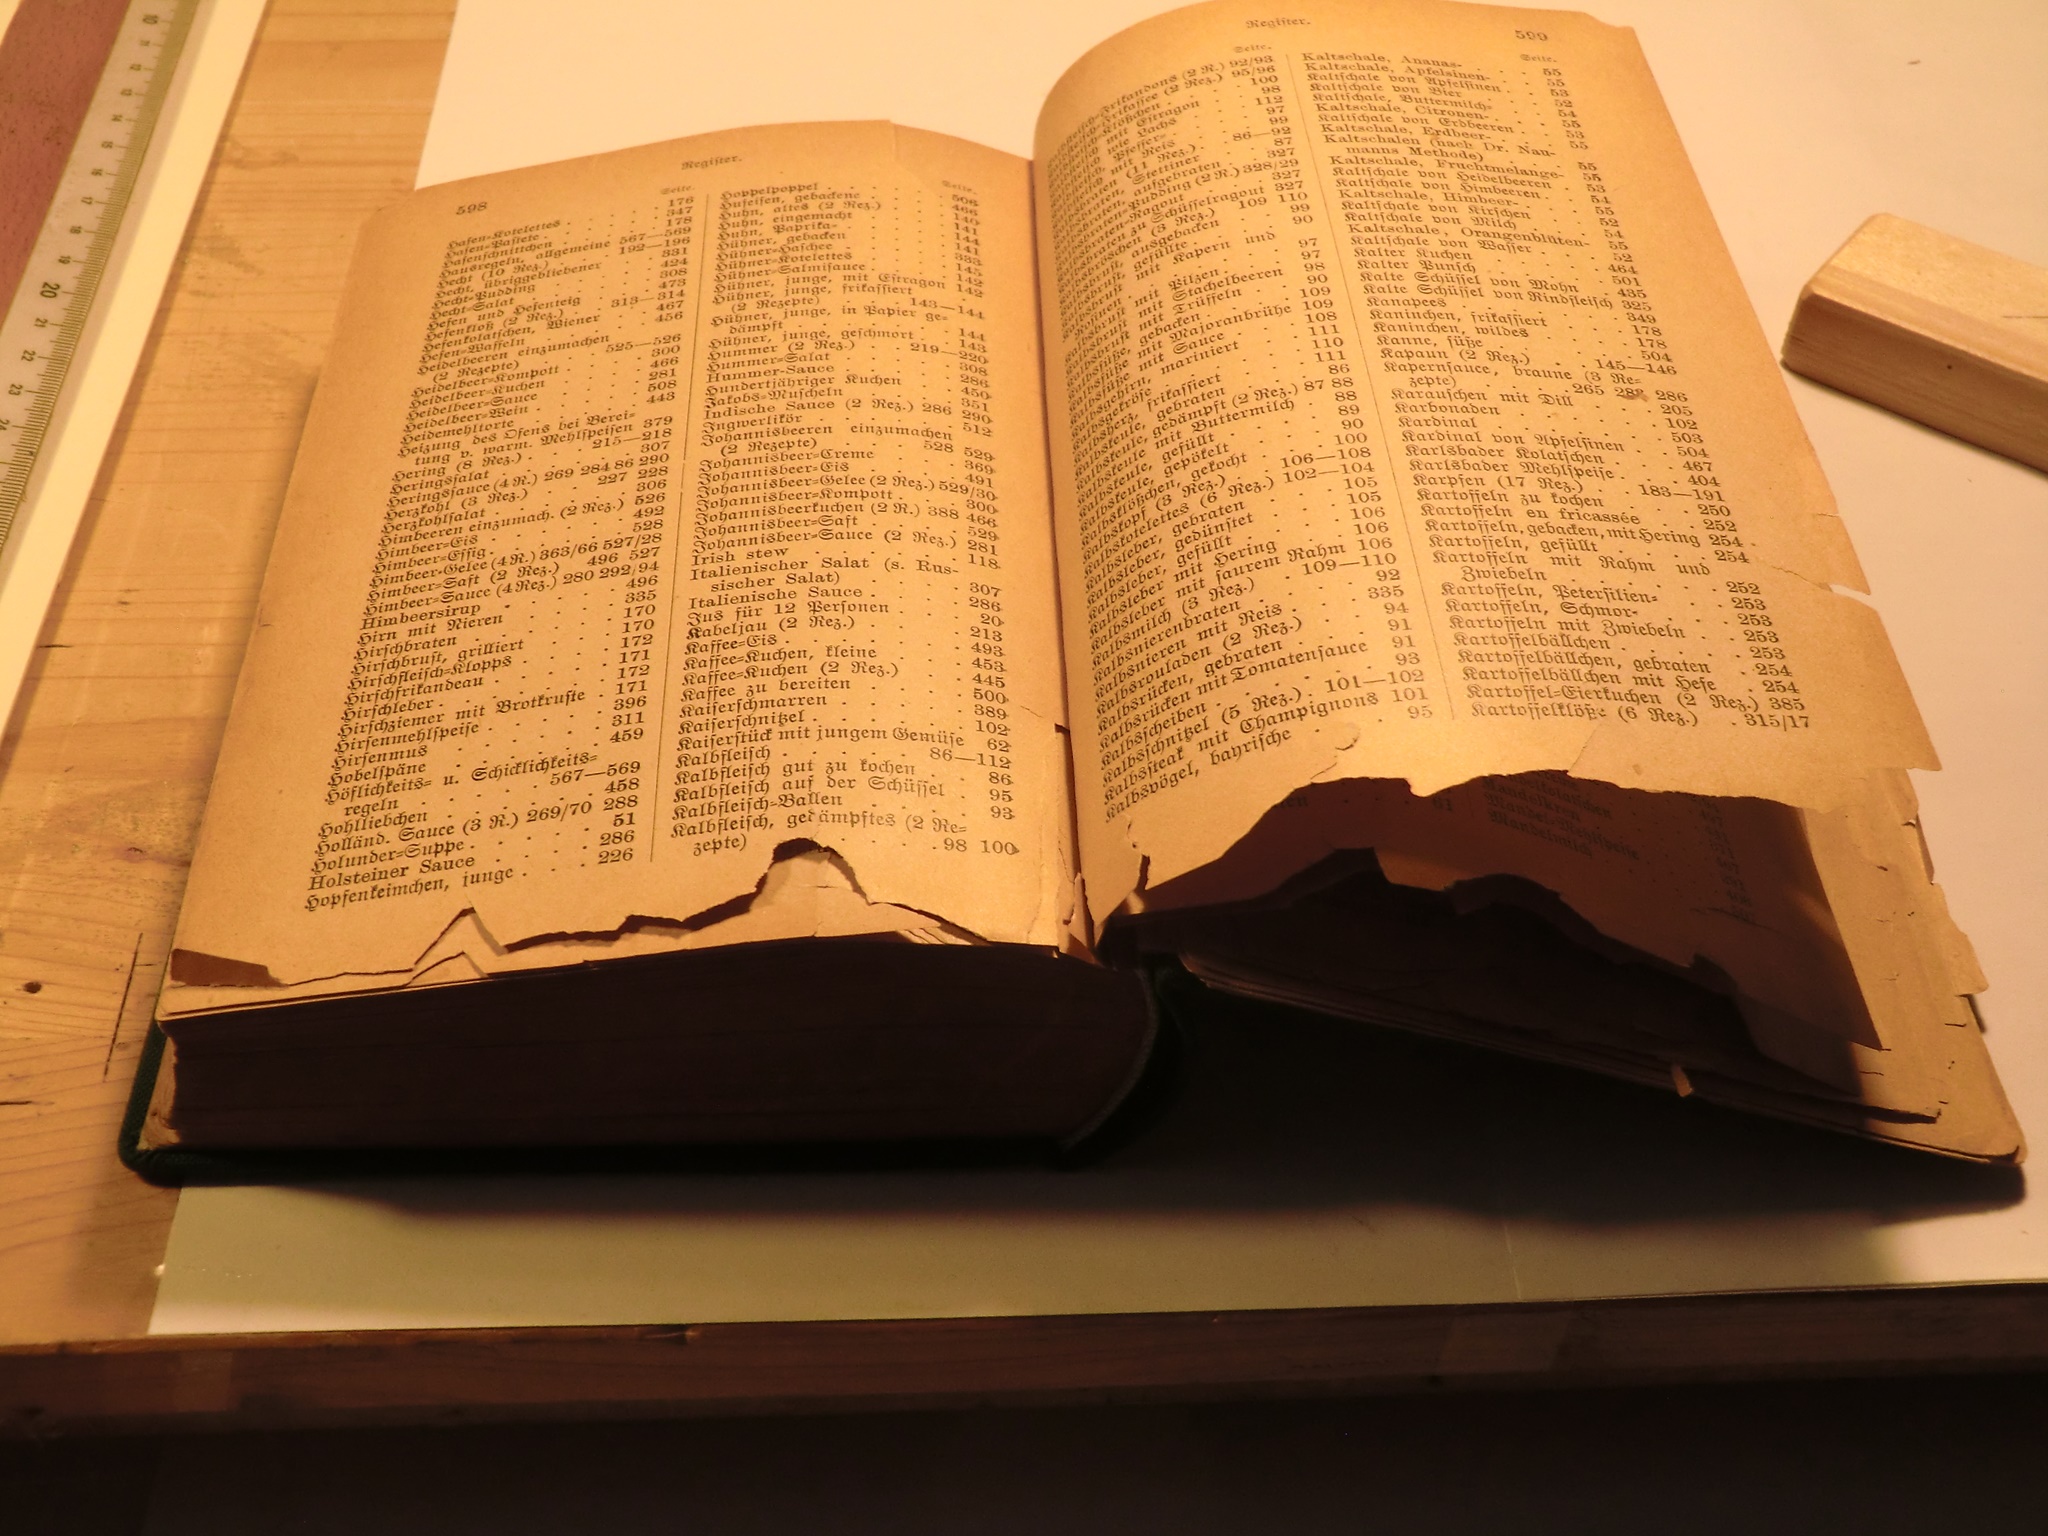 598
Register.
Seite.
Hasen-Kotelettes . . . . 176
Hasen-Pastete . . . . . 347
Hasenschnittchen . . . . 178
Hausregeln, allgemeine 567—569
Hecht (10 Rez.) . . 192—196
Hecht, übriggebliebener 331
Hecht-Pudding . . . . 424
Hecht-Salat . . . . . 308
Hefen und Hefenteig . . 473
Hefenkloß (2 Rez.) . 313—314
Hefenkolatschen, Wiener 467
Hefen-Waffeln . . . . 456
Heidelbeeren einzumachen
(2 Rezepte) . . . 525—526
Heidelbeer-Kompott . . . 300
Heidelbeer-Kuchen . . . 466
Heidelbeer-Sauce . . . . 281
Heidelbeer-Wein . . . . 508
Heidemehltorte . . . . 443
Heizung des Ofens bei Berei-
tung v. warm. Mehlspeisen 379
Hering (8 Rez.) . . 215—218
Heringssalat . . . . . 307
Heringssauce (4 R.) 269 284 86 290
Herzkohl (3 Rez.) . . 227 228
Herzkohlsalat . . . . . 306
Himbeeren einzumach. (2 Rez.) 526
Himbeer-Eis . . . . . 492
Himbeer-Essig . . . . . 528
Himbeer-Gelee (4 R.) 363/66 527/28
Himbeer-Saft (2 Rez.) 496 527
Himbeer-Sauce (4 Rez.) 280 292/94
Himbeersirup . . . . . 496
Hirn mit Nieren . . . . 335
Hirschbraten . . . . . 170
Hirschbrust, grilliert . . . 170
Hirschfleisch-Klopps . . . 172
Hirschfrikandeau . . . . 171
Hirschleber . . . . . . 172
Hirschziemer mit Brotkruste . 171
Hirsenmehlspeise . . . . 396
Hirsenmus . . . . . . 311
Hobelspäne . . . . . . 459
Höflichkeits- u. Schicklichkeits-
regeln . . . . . 567—569
Hohlliebchen . . . . . 458
Holländ. Sauce (3 R.) 269/70 288
Holunder-Suppe . . . . . 51
Holsteiner Sauce . . . . 286
Hopfenkeimchen, junge . . . 226
Seite.
Hoppelpoppel . . . . . 506
Hufeisen, gebackene . . . 466
Huhn, altes (2 Rez.) . . 140
Huhn, eingemacht . . . 141
Huhn, Paprika- . . . . 144
Hühner, gebacken . . . 141
Hühner-Haschee . . . . 333
Hühner-Kotelettes . . . 145
Hühner-Salmisauce . . . 142
Hühner, junge, mit Estragon 142
Hühner, junge, frikassiert
(2 Rezepte) . . . 143—144
Hühner, junge, in Papier ge-
dämpft . . . . . . 144
Hühner, junge, geschmort . 143
Hummer (2 Rez.) . 219—220
Hummer-Salat . . . . 308
Hummer-Sauce . . . . 286
Hundertjähriger Kuchen . 450
Jakobs-Muscheln . . . . 351
Indische Sauce (2 Rez.) 286 290
Ingwerlikör . . . . . 512
Johannisbeeren einzumachen
(2 Rezepte) . . . 528 529
Johannisbeer-Creme . . . 369
Johannisbeer-Eis . . . . 491
Johannisbeer-Gelee (2 Rez.) 529/30
Johannisbeer-Kompott . . 300
Johannisbeerkuchen (2 R.) 388 466
Johannisbeer-Saft . . . 529
Johannisbeer-Sauce (2 Rez.) 281
Irish stew . . . . . . 118
Italienischer Salat (s. Rus-
sischer Salat) . . . . 307
Italienische Sauce . . . . 286
Jus für 12 Personen . . . 20
Kabeljau (2 Rez.) . . . 213
Kaffee-Eis . . . . . . 493
Kaffee-Kuchen, kleine . . 453
Kaffee-Kuchen (2 Rez.) . 445
Kaffee zu bereiten . . . 500
Kaiserschmarren . . . . 389
Kaiserschnitzel . . . . . 102
Kaiserstück mit jungem Gemüse 62
Kalbfleisch . . . . . 86—112
Kalbfleisch gut zu kochen . 86
Kalbfleisch auf der Schüssel . 95
Kalbfleisch-Ballen . . . . 93
Kalbfleisch, gedämpftes (2 Re-
zepte) . . . . . . 98 100
Register.
599
Seite.
Frikandons (2 R.) 92/93
Frikassee (2 Rez.) 95/96
Klößchen . . . 100
mit Estragon . 98
wie Lachs . . 112
Pfeffer- . . . 97
mit Reis . . . 99
(1 Rez.) . . 86—92
Stettiner . . 87
aufgebraten . . 327
Pudding (2 R.) 328/29
Ragout . . 327
zu Schüsselragout 327
(3 Rez.) 109 110
ausgebacken . . 99
gefüllte . . . 90
mit Kapern und
. . . 97
mit Pilzen . . 97
mit Stachelbeeren 98
Kalbsbrust mit Trüffeln . 90
Kalbsfüße, gebacken . . 109
Kalbsfüße mit Majoranbrühe 109
Kalbsfüße mit Sauce . . 108
Kalbsgehirn, mariniert . . 111
Kalbsgekröse . . . 110
Kalbsherz, frikassiert . . 111
Kalbskeule, gebraten . . 86
Kalbskeule, gedämpft (2 Rez.) 87 88
Kalbskeule mit Buttermilch . 88
Kalbskeule, gefüllt . . . 89
Kalbskeule, gepökelt . . . 90
Kalbsklößchen, gekocht . . 100
Kalbskopf (3 Rez.) . 106—108
Kalbskotelettes (6 Rez.) 102—104
Kalbsleber, gebraten . . . 105
Kalbsleber, gedünstet . . 105
Kalbsleber, gefüllt . . . 106
Kalbsleber mit Hering . . 106
Kalbsleber mit saurem Rahm 106
Kalbsmilch (3 Rez.) . 109—110
Kalbsnierenbraten . . . . 92
Kalbsnieren mit Reis . . . 335
Kalbsrouladen (2 Rez.) . . 94
Kalbsrücken, gebraten . . 91
Kalbsrücken mit Tomatensauce 91
Kalbsscheiben . . . . . 93
Kalbsschnitzel (5 Rez.) . 101—102
Kalbssteak mit Champignons 101
Kalbsvögel, bayrische . . . 95
Seite.
Kaltschale, Ananas- . . . 55
Kaltschale, Apfelsinen- . . 55
Kaltschale von Apfelsinen . 53
Kaltschale von Bier . . . 52
Kaltschale, Buttermilch- . . 54
Kaltschale, Citronen- . . . 55
Kaltschale von Erdbeeren . . 53
Kaltschale, Erdbeer- . . . 55
Kaltschalen (nach Dr. Nau-
manns Methode) . . . 55
Kaltschale, Fruchtmelange- . 55
Kaltschale von Heidelbeeren . 53
Kaltschale von Himbeeren . . 54
Kaltschale, Himbeer- . . . 55
Kaltschale von Kirschen . . 52
Kaltschale von Milch . . . 54
Kaltschale, Orangenblüten- . 55
Kaltschale von Wasser . . 52
Kalter Kuchen . . . . 464
Kalter Punsch . . . . 501
Kalte Schüssel von Mohn . 435
Kalte Schüssel von Rindfleisch 325
Kanapees . . . . . . 349
Kaninchen, frikassiert . . 178
Kaninchen, wildes . . . 178
Kanne, süße . . . . . 504
Kapaun (2 Rez.) . . 145—146
Kapernsauce, braune (3 Re-
zepte) . . . . 265 282 286
Karauschen mit Dill . . . 205
Karbonaden . . . . . 102
Kardinal . . . . . . 503
Kardinal von Apfelsinen . . 504
Karlsbader Kolatschen . . . 467
Karlsbader Mehlspeise . . . 404
Karpfen (17 Rez.) . . 183—191
Kartoffeln zu kochen . . . 250
Kartoffeln en fricassée . . 252
Kartoffeln, gebacken, mit Hering 254
Kartoffeln, gefüllt . . . . 254
Kartoffeln mit Rahm und
Zwiebeln . . . . . . 252
Kartoffeln, Petersilien- . . . 253
Kartoffeln, Schmor- . . . 253
Kartoffeln mit Zwiebeln . . 253
Kartoffelbällchen . . . . 253
Kartoffelbällchen, gebraten . 254
Kartoffelbällchen mit Hefe . 254
Kartoffel-Eierkuchen (2 Rez.) 385
Kartoffelklöße (6 Rez.) . . 315/17
61
Mandelkrem
Mandel-Mehlspeise
Mandelmilch
10
11
12
13
14
15
16
17
18
19
20
21
22
23
24